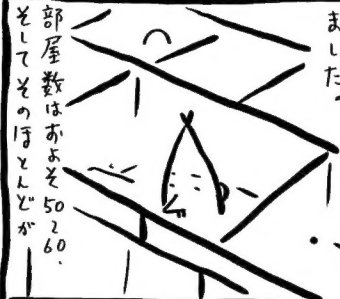 ました。
部屋数はおよそ50~60、
そしてそのほとんどが